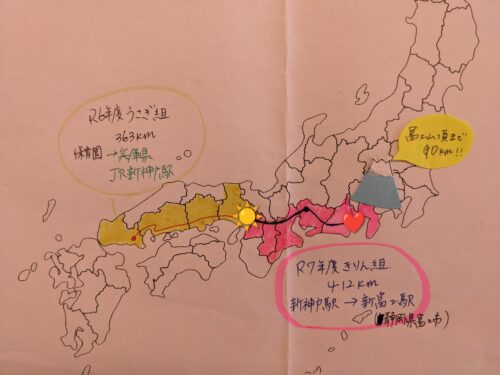 R6年度うさぎ組
363km
保育園→兵庫県
JR新神戸駅
富士山頂まで
90km!!
R7年度きりん組
412km
新神戸駅→新富士駅
(静岡県富士市)